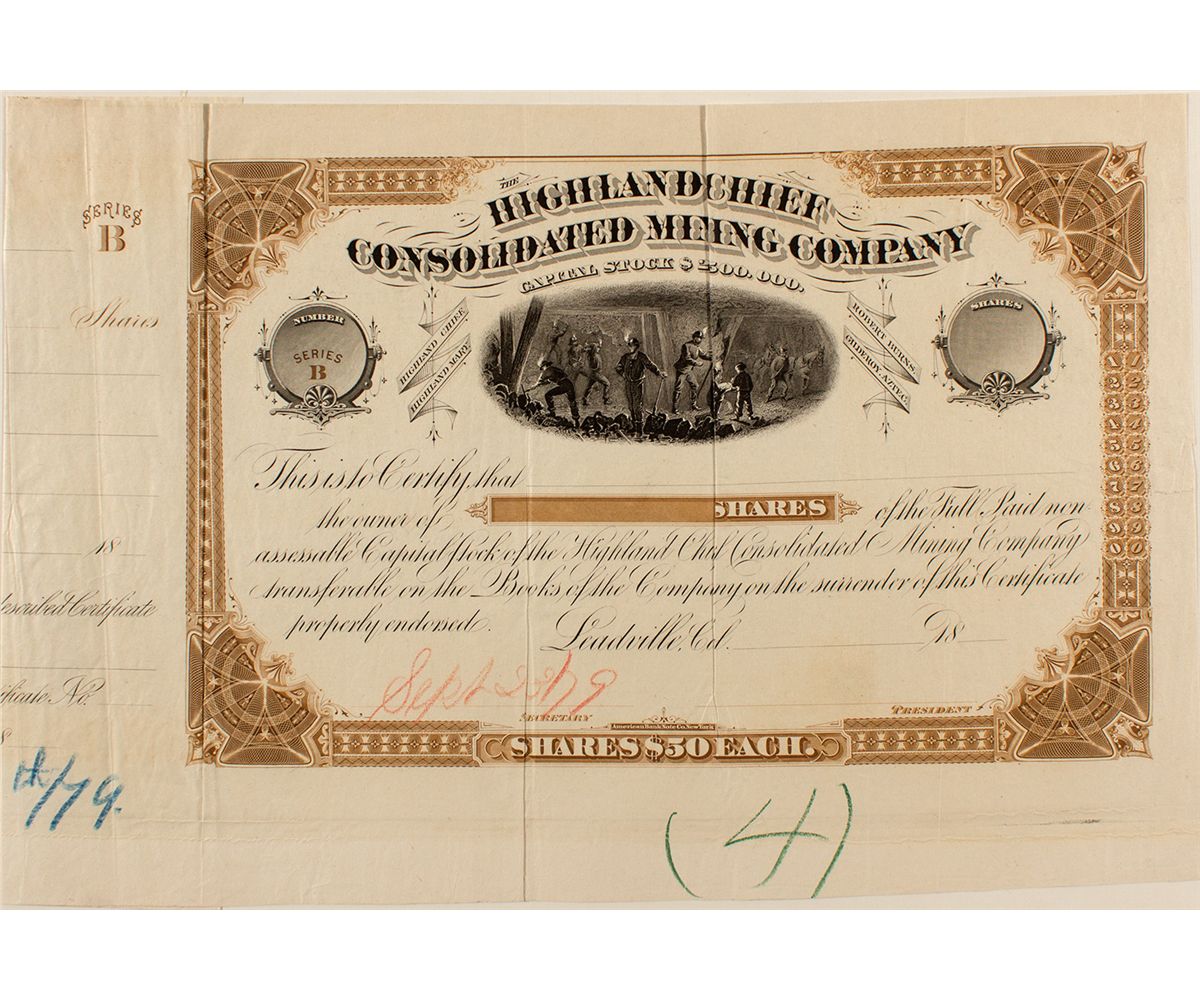 SERIES
B
Shares
18
described Certificate
ificate No.
8
/79.
THE
HIGHLAND CHIEF
CONSOLIDATED MINING COMPANY
CAPITAL STOCK $2,500.000.
NUMBER
SERIES
B
HIGHLAND CHIEF
HIGHLAND MARY
ROBERT BURNS,
GILDEROY, AZTEC.
SHARES
1 1
2 2
3 3
4 4
5 5
6 6
7 7
8 8
9 9
0 0
This is to Certify that
the owner of SHARES of the Full Paid non
assessable Capital stock of the Highland Chief Consolidated Mining Company
transferable on the Books of the Company on the surrender of this Certificate
properly endorsed. Leadville, Col. 18
Sept 22/79
SECRETARY
PRESIDENT
American Bank Note Co. New York
SHARES $50 EACH.
(4)